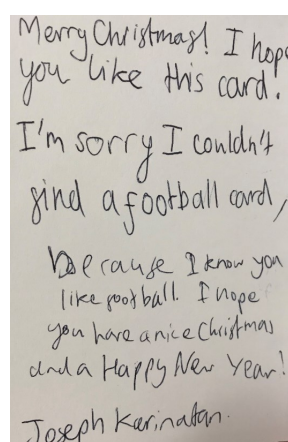 Merry Christmas! I hope
you like this card.
I'm sorry I couldn't
find a football card,
because I know you
like football. I hope
you have a nice Christmas
and a Happy New Year!
Joseph Karinatan.